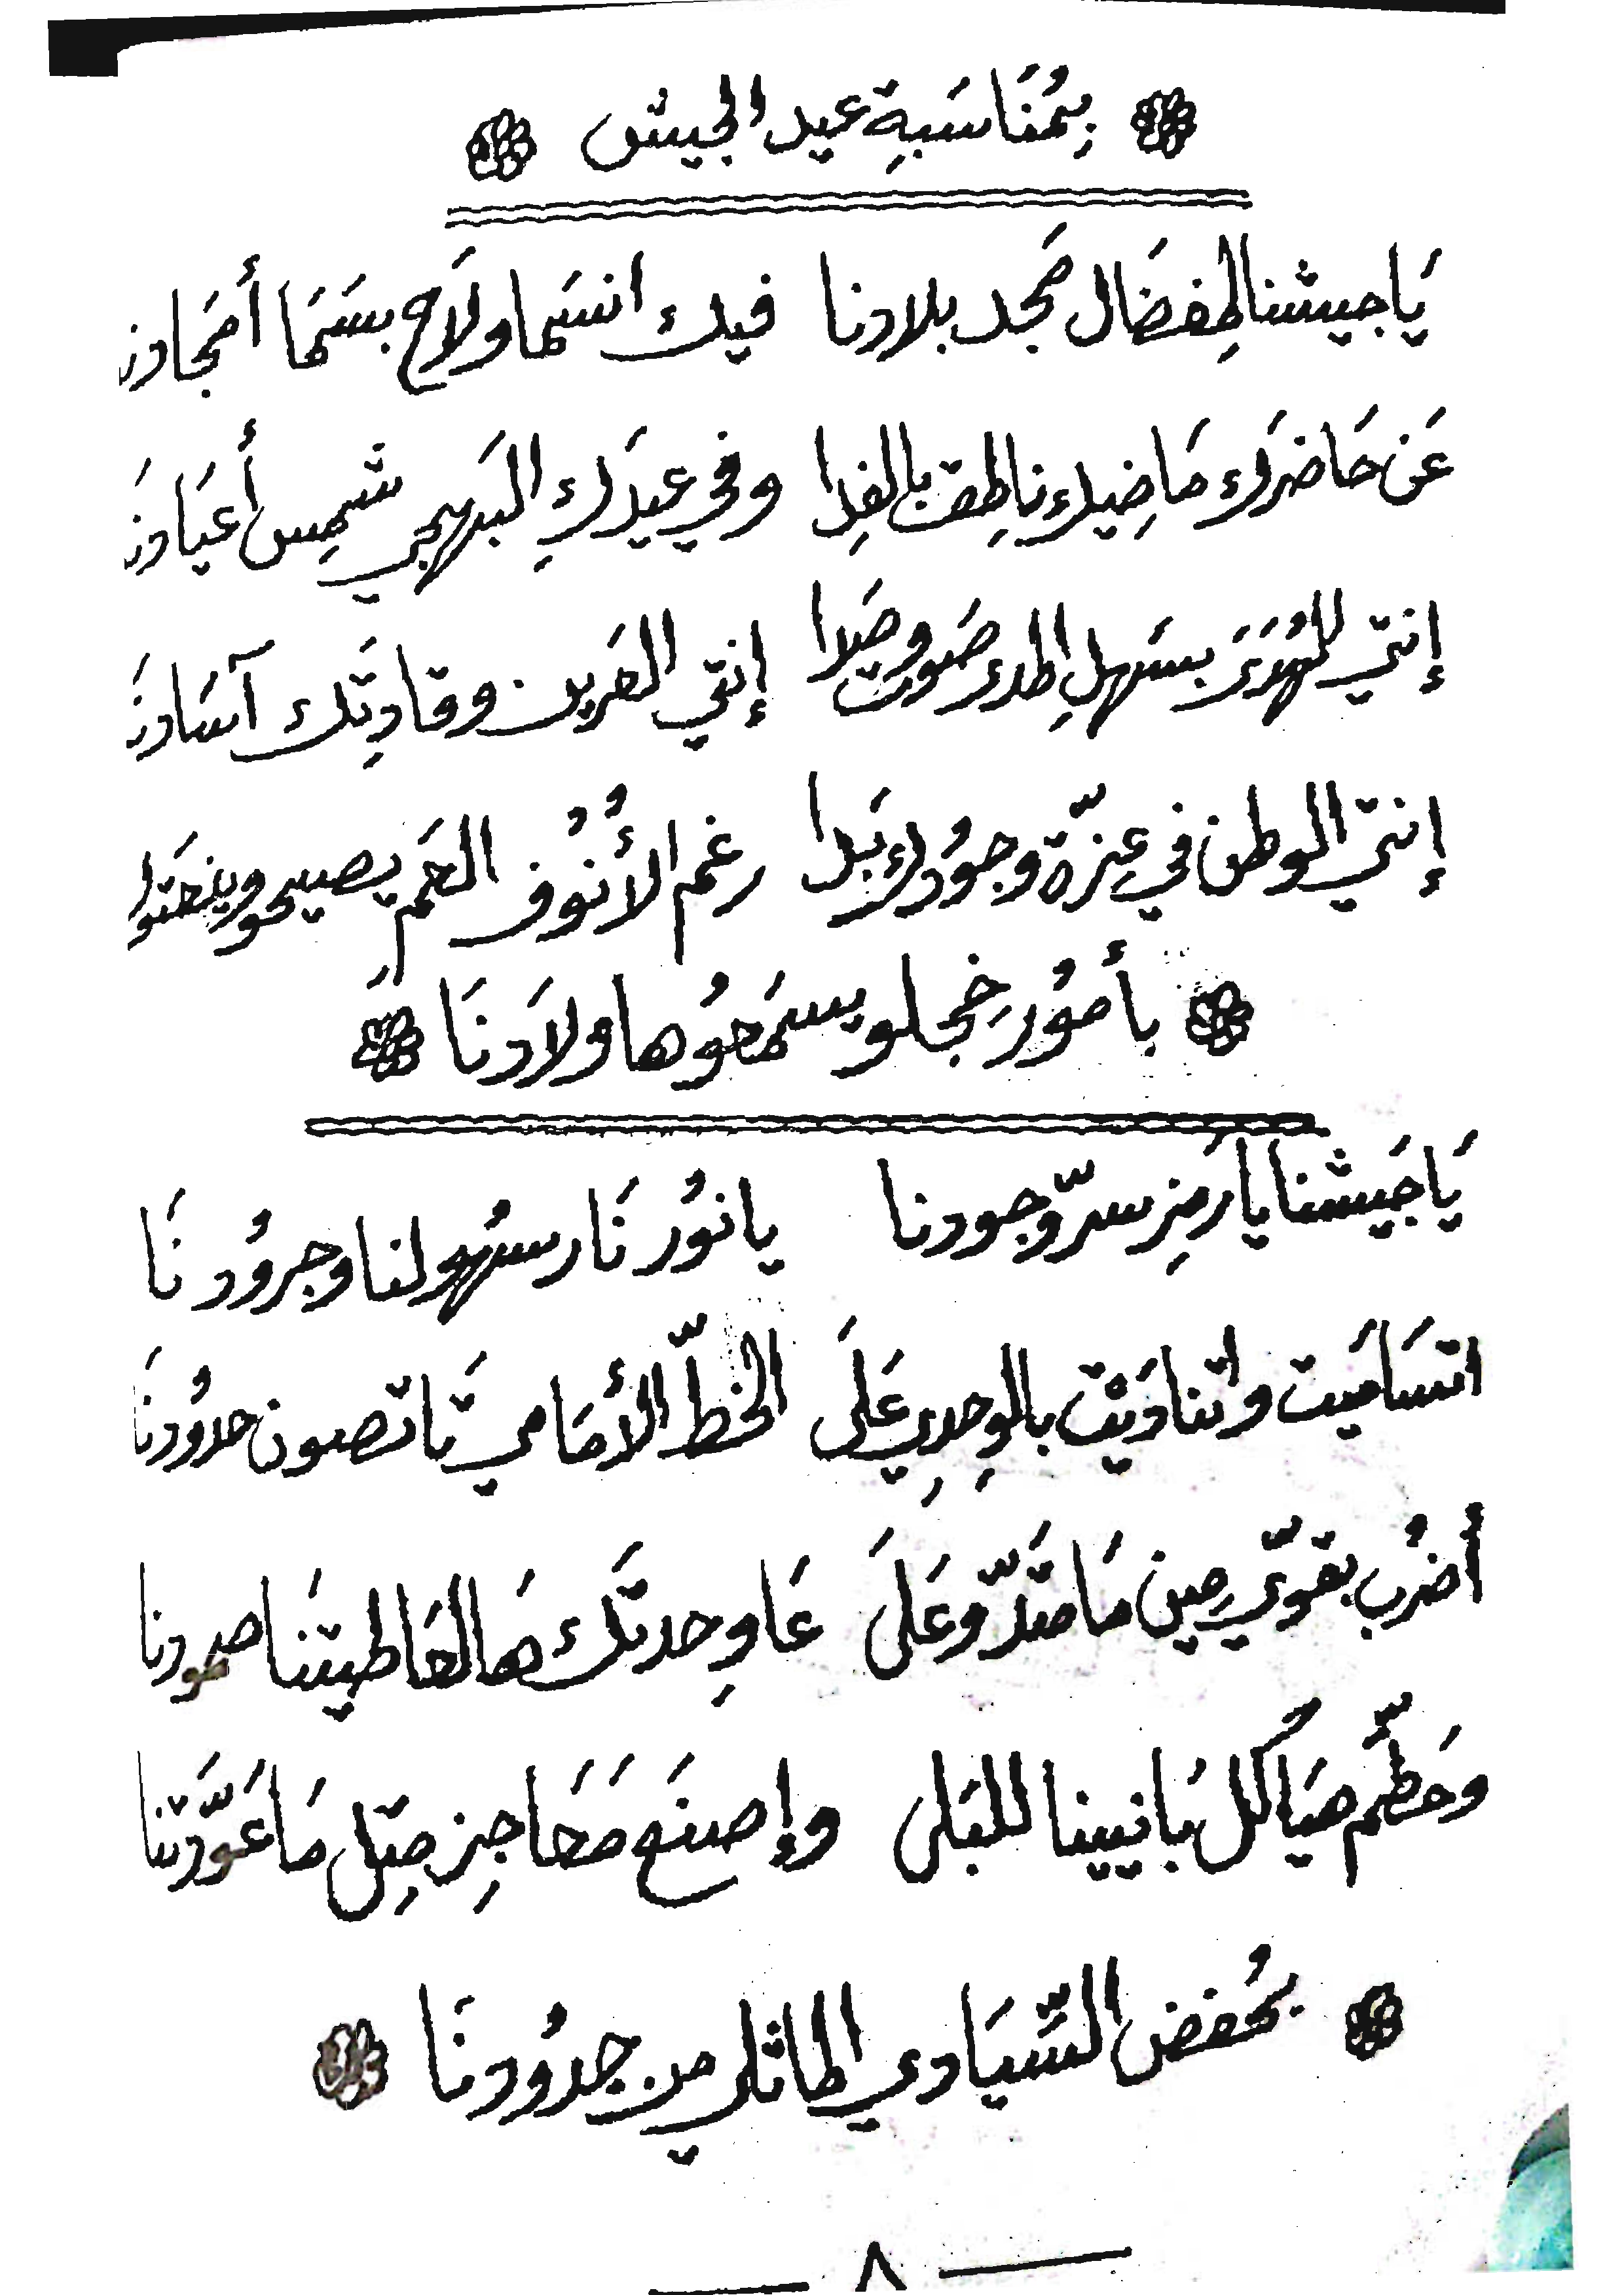 بمُنَاسَبةِ عيد الجيش
يَا جيشنا لمِفضَال مَجد بلادنا فيك انسَما ولَاح بسَمَا أمَجادنَ
عَن حَاضرَك مَاضِيك ناطِق بالفِدا وفي عيدَكِ البَهجي شمِس أعيَادنَ
إنتي المُهَدَى بسَهلِ المدى صَوت وصَلا إنتي العَرين وقادِتَك آسَادنَ
إنتي الوطن في عِزّة وجوُدك بَدا رغم الأنُوُف العَم يصيحو وينحَتوا
بأموُر خِجلو يسمَحوُها ولادَنَا
يَا جَيشنا يا رَمِز سرّ وجودنا يا نوُر نَار سهُولنا وجروُدنَا
اتسَامَيت واتنادَيْت بالوِحدِي عَلَى الخطّ الأمَامي تَا تصون حدوُدنَا
أضرُب بقوّي مِين مَا مَتَدّ وعَلَى عَا وِحدتَك هَالعَاطيتنَا صمودنا
وحَطّم هيَاكُل بَانيينا للبَلى وإصنَع مَحَاجِز مِتِل مَا عَوَّدتنا
بحُفض السِّيَادي الماثلي من جدوُدنَا
٨